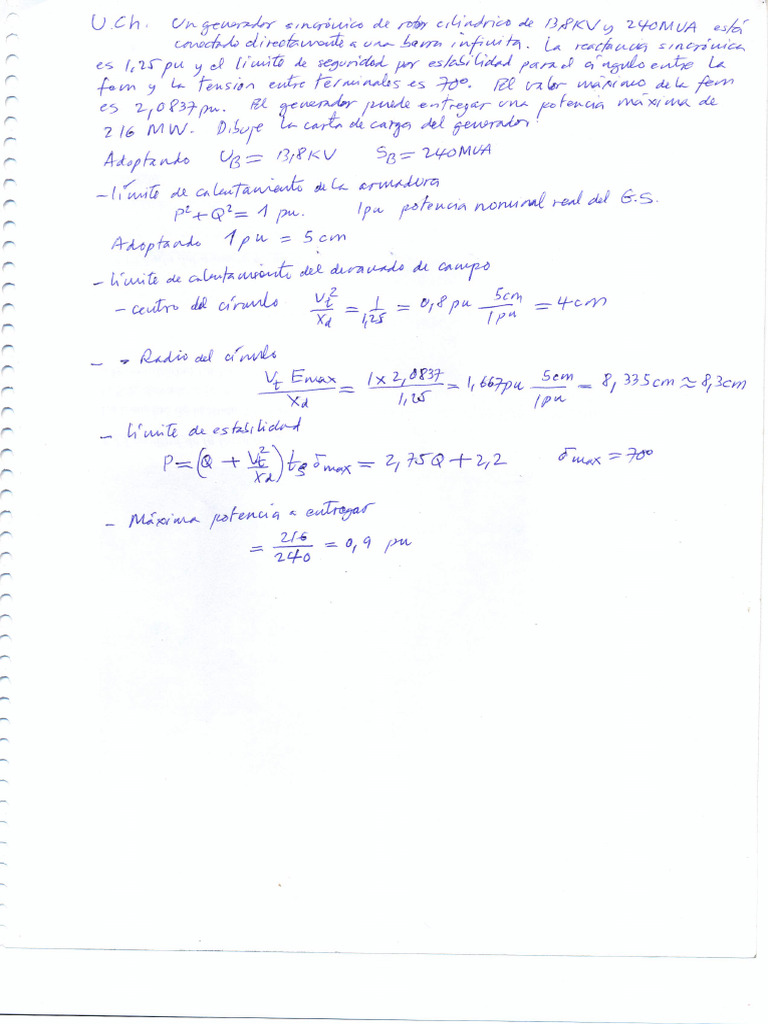 U.Ch. Un generador sincrónico de rotor cilíndrico de 13,8KV y 240MVA está
conectado directamente a una barra infinita. La reactancia sincrónica
es 1,25 pu y el límite de seguridad por estabilidad para el ángulo entre la
fem y la tensión entre terminales es 70º. El valor máximo de la fem
es 2,0837pu. El generador puede entregar una potencia máxima de
216 MW. Dibuje la carta de carga del generador.
Adoptando U_B = 13,8KV S_B = 240MVA
- límite de calentamiento de la armadura
P² + Q² = 1 pu. 1pu potencia nominal real del G.S.
Adoptando 1pu = 5cm
- límite de calentamiento del devanado de campo
- centro del círculo V_t²/X_d = 1/1,25 = 0,8pu 5cm/1pu = 4cm
- - Radio del círculo
V_t Emax/X_d = 1x2,0837/1,25 = 1,667pu 5cm/1pu = 8,335cm ≈ 8,3cm
- límite de estabilidad
P = (Q + V_t²/X_d) tg δmax = 2,75Q + 2,2 δmax = 70º
- Máxima potencia a entregar
= 216/240 = 0,9 pu